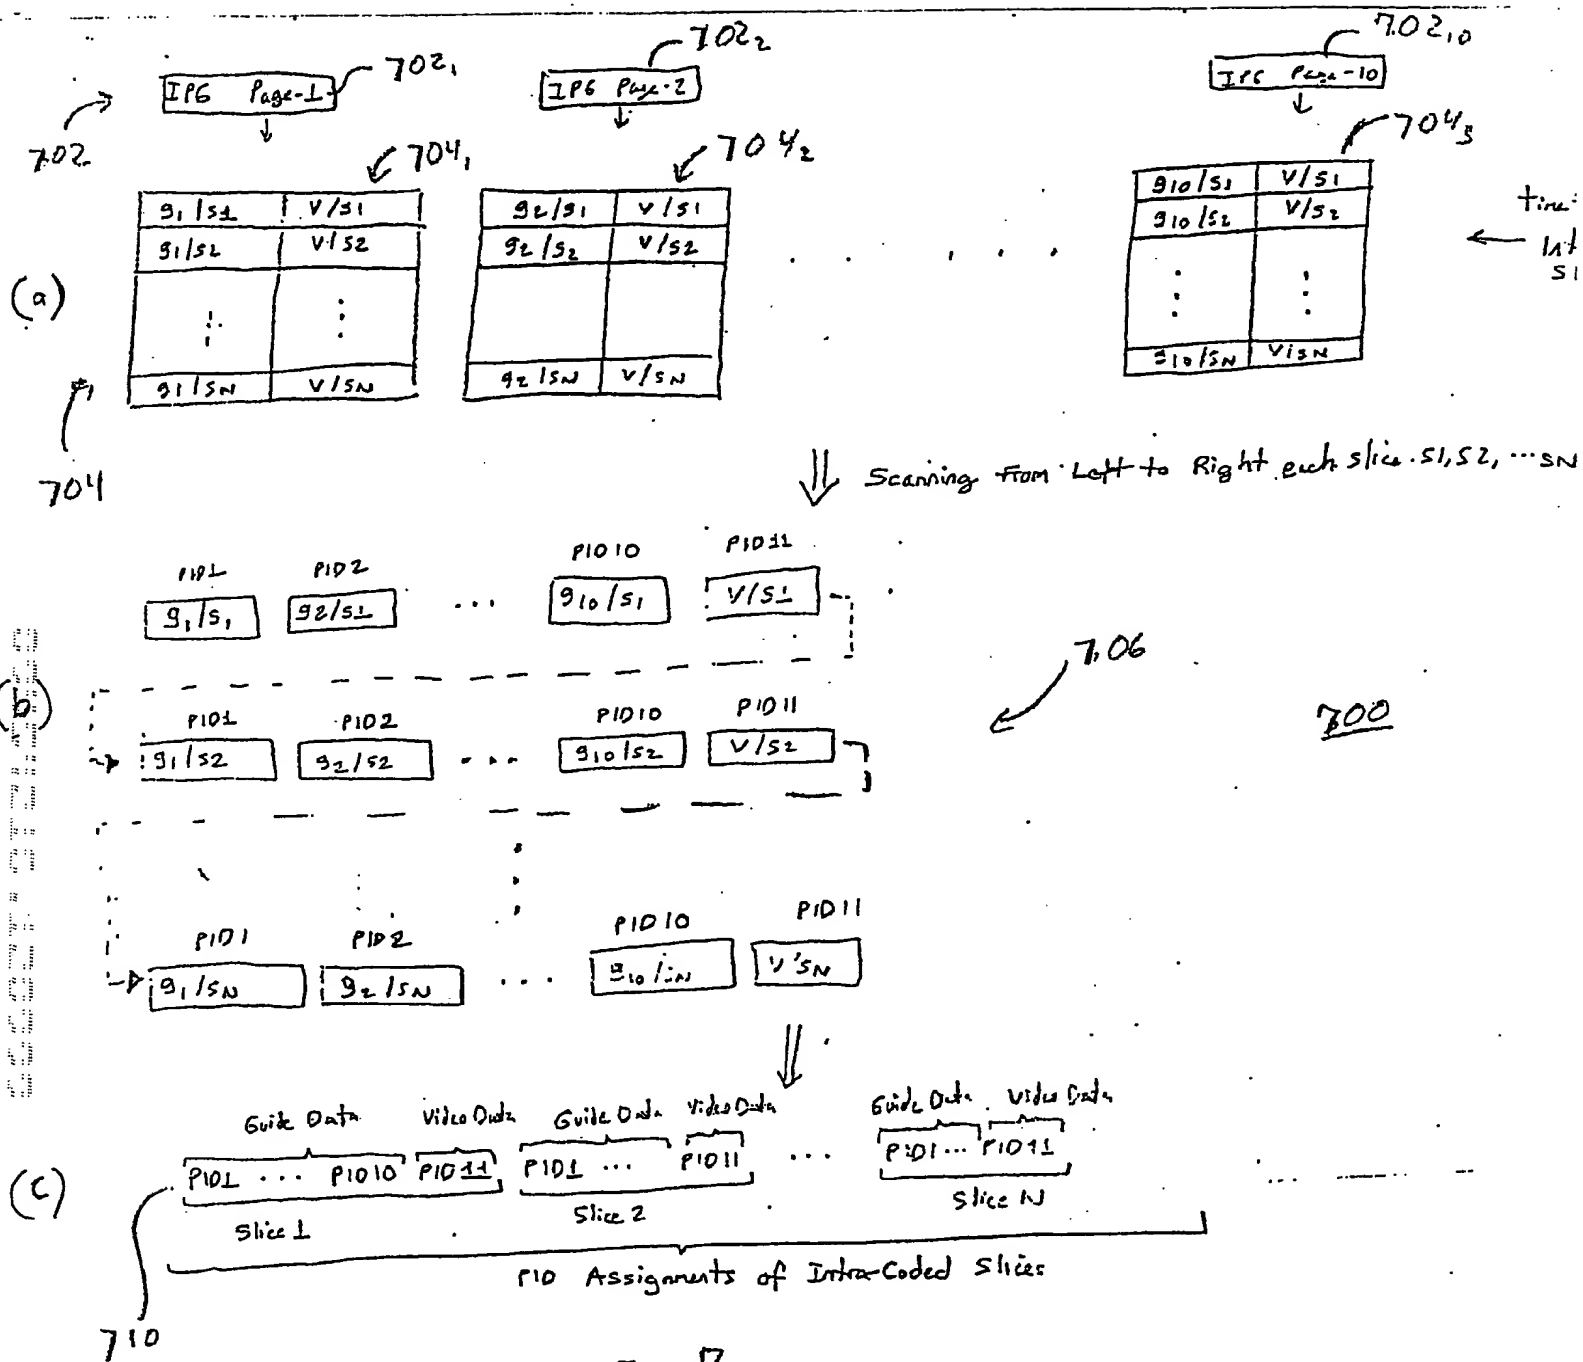 702₁ 702₂ 702₁₀
IPG Page-1 IPG Page-2 IPG Page-10
702 704₁ 704₂ 704₃
g1/s1 V/s1 g2/s1 V/s1 g10/s1 V/s1
g1/s2 V/s2 g2/s2 V/s2 g10/s2 V/s2
(a)
g1/sN V/sN g2/sN V/sN g10/sN V/sN
704
Scanning From Left to Right each slice S1, S2, ... SN
PID1 PID2 PID10 PID11
g1/s1 g2/s1 ... g10/s1 V/s1
706
(b) 700
PID1 PID2 PID10 PID11
g1/s2 g2/s2 ... g10/s2 V/s2
PID1 PID2 PID10 PID11
g1/sN g2/sN ... g10/sN V/sN
Guide Data Video Data Guide Data Video Data Guide Data Video Data
(c) PID1 ... PID10 PID11 PID1 ... PID11 ... PID1 ... PID11
Slice 1 Slice 2 Slice N
PID Assignments of Intra-Coded Slices
710